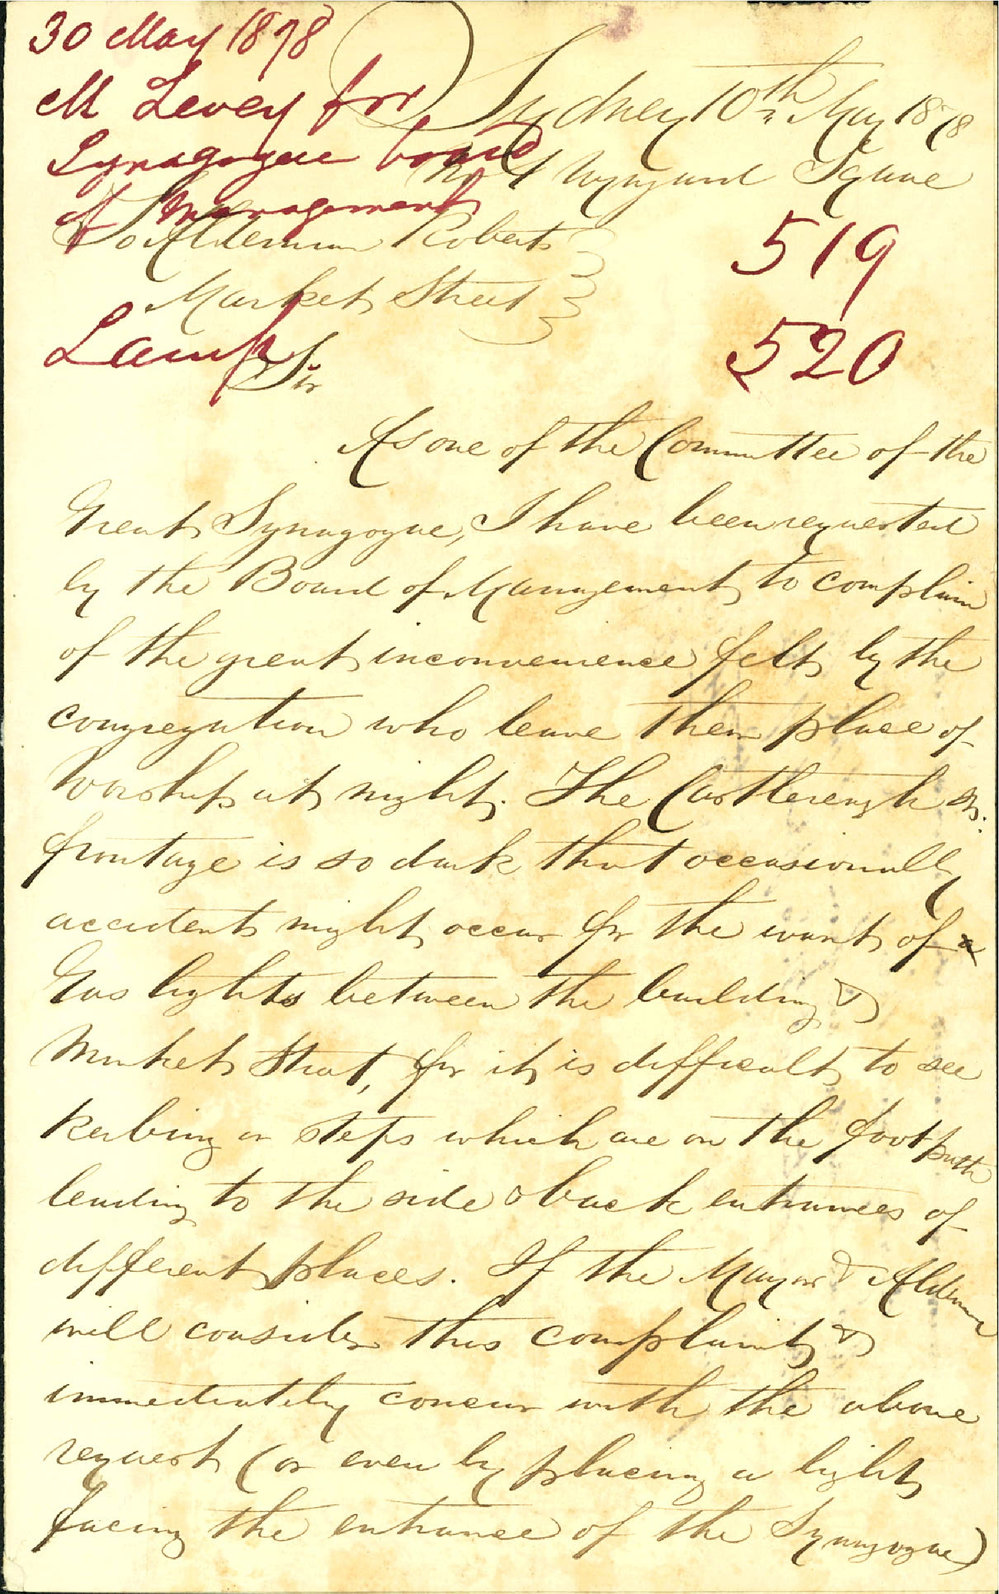 30 May 1878
M Levey for
Synagogue board
of Management
Lamp
Sydney 10th May 1878
No 4 Wynyard Square
To Alderman Roberts
Market Street
519
520
Sir
As one of the Committee of the
Great Synagogue, I have been requested
by the Board of Management to complain
of the great inconvenience felt by the
congregation who leave their place of
Worship at night. The Castlereagh St.
frontage is so dark that occasionally
accidents might occur for the want of a
Gas lights between the building &
Market Street, for it is difficult to see
kerbing or steps which are on the footpath
leading to the side & back entrances of
different places. If the Mayor & Aldermen
will consider this complaint &
immediately concur with the above
request (or even by placing a light
facing the entrance of the Synagogue)